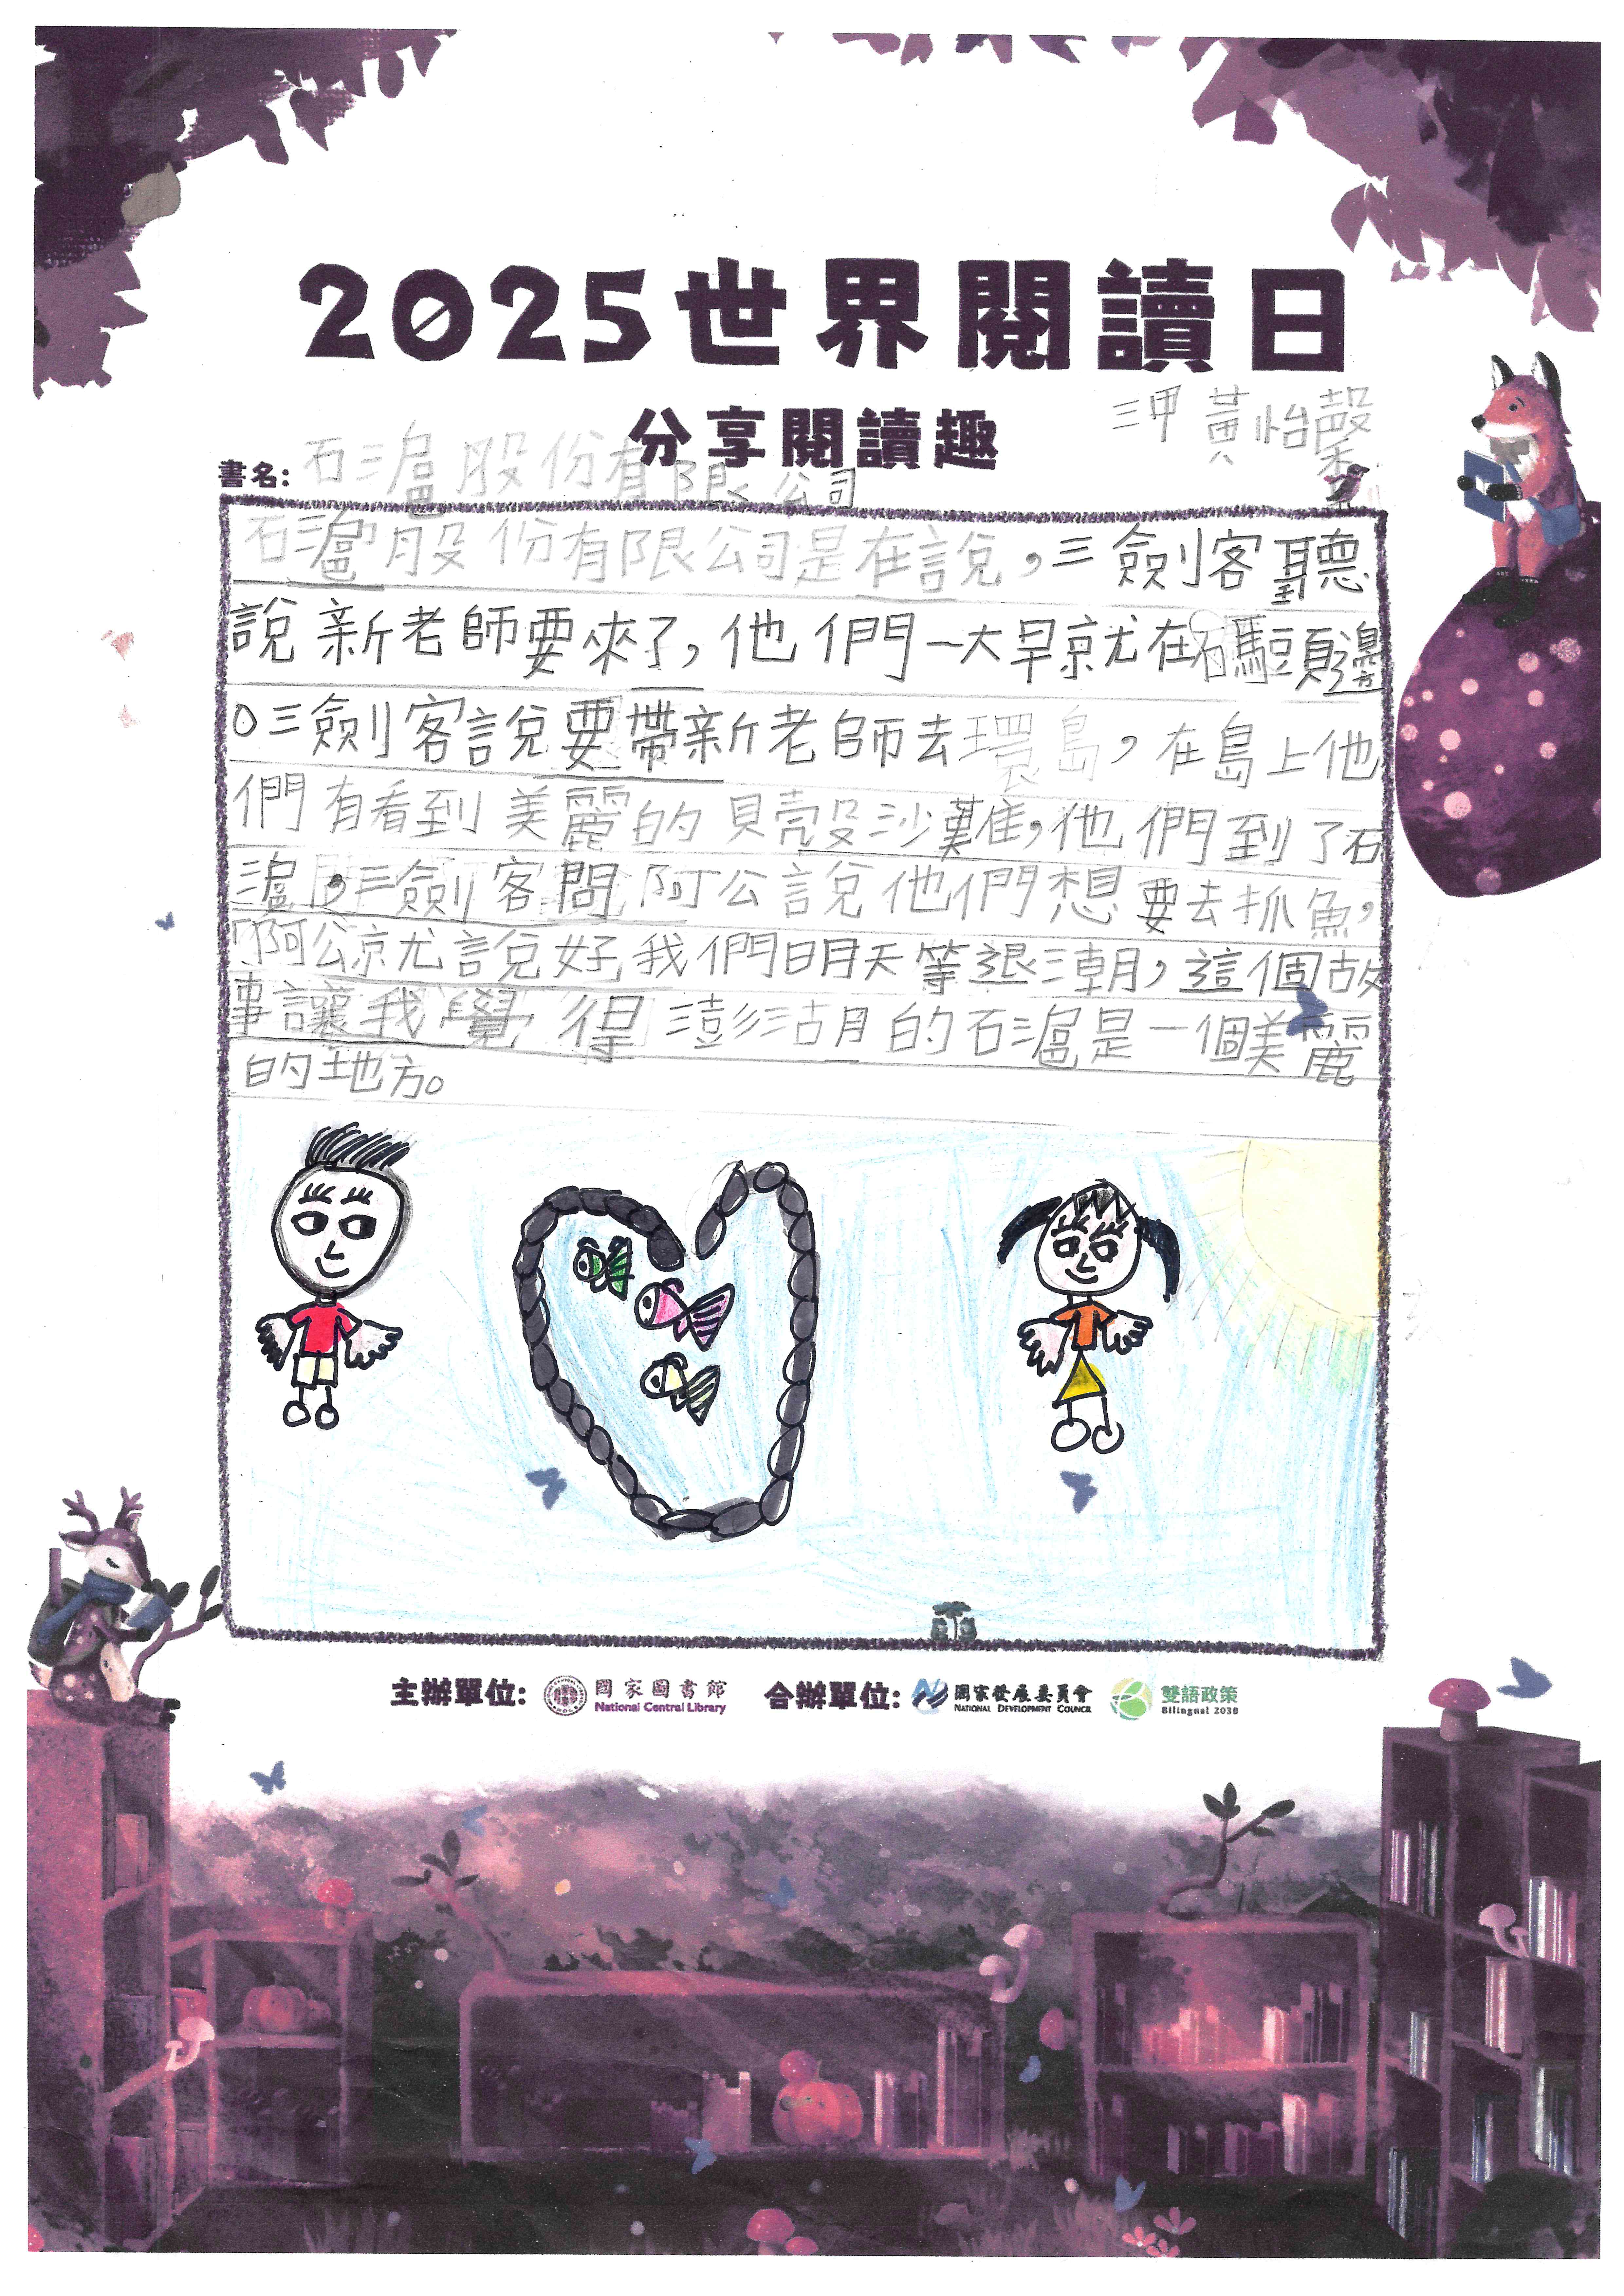 2025世界閱讀日
分享閱讀趣
三甲 黃怡馨
書名: 石滬股份有限公司
石滬股份有限公司是在說，三劍客聽
說新老師要來了，他們一大早就在碼頭邊
。三劍客說要帶新老師去環島，在島上他
們有看到美麗的貝殼沙灘，他們到了石
滬，三劍客問阿公說他們想要去抓魚，
啊公就說好我們明天等退潮，這個故
事讓我覺得澎湖的石滬是一個美麗
的地方。
主辦單位: 國家圖書館 National Central Library 合辦單位: 國家發展委員會 National Development Council 雙語政策 Bilingual 2030